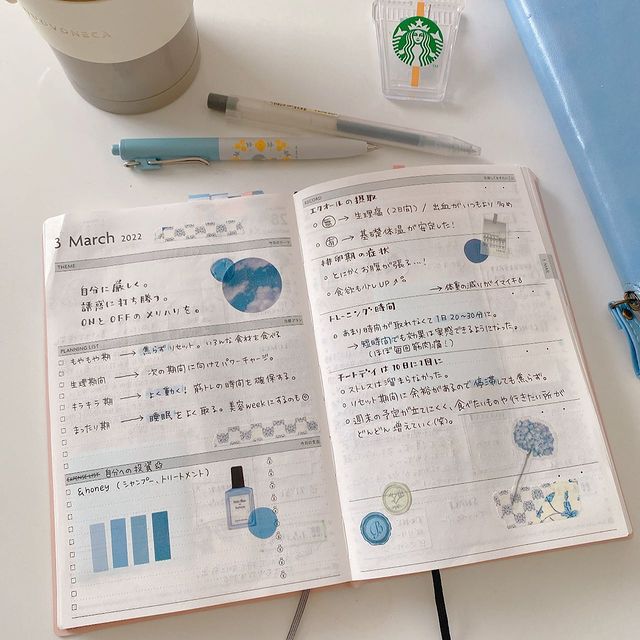 3 March 2022
THEME
自分に厳しく。
誘惑に打ち勝つ。
ONとOFFのメリハリを。
PLANNING LIST
もやもや期 → 焦らずリセット。いろんな食材を食べる
生理期間 → 次の期間に向けてパワーチャージ。
キラキラ期 → よく動く! 筋トレの時間を確保する。
まったり期 → 睡眠をよく取る。美容weekにするのも◎
自分への投資
&honey (シャンプー、トリートメント)
RECORD
エクオールの摂取
→ 生理痛(2日間) / 出血がいつもより多め
→ 基礎体温が安定した!
排卵期の症状
とにかくお腹が張る…!
食欲もバレUP
→ 体重の減りがイマイチ
トレーニング時間
あまり時間が取れなくて1日20~30分に。
→ 短時間でも効果は実感できるようになった。
(ほぼ毎回筋肉痛!)
チートデイは10日に1回に
ストレスは溜まらなかった。
リセット期間に余裕があるので停滞しても焦らず。
週末の予定が立てにくく、食べたいものや行きたい所が
どんどん増えていく(笑)。